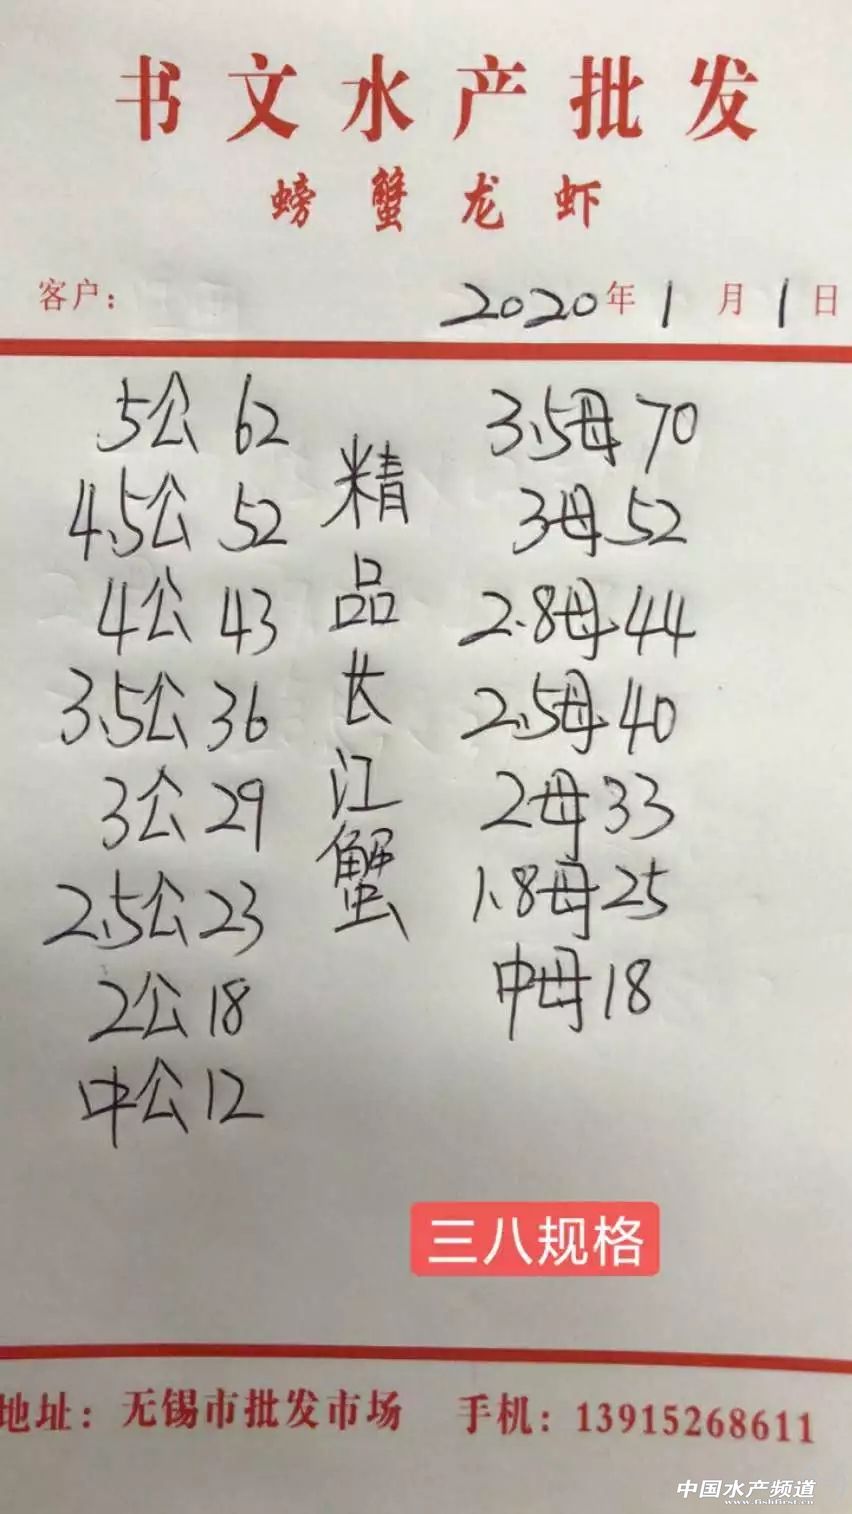 书文水产批发
螃蟹龙虾
客户：
2020年1月1日
5公 62
4.5公 52
4公 43
3.5公 36
3公 29
2.5公 23
2公 18
中公 12
精品长江蟹
3.5母 70
3母 52
2.8母 44
2.5母 40
2母 33
1.8母 25
中母 18
三八规格
地址：无锡市批发市场 手机：13915268611
中国水产频道
www.fishfirst.cn